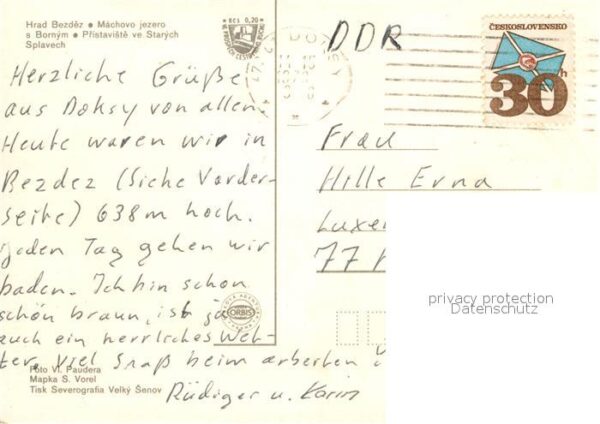 Hrad Bezděz ● Máchovo jezero
s Borným ● Přístaviště ve Starých
Splavech
Kčs 0,20
DOKSY
DDR
ČESKOSLOVENSKO
30h
Herzliche Grüße
aus Doksy von allen.
Heute waren wir in
Bezdez (Siehe Vorder-
seite) 638m hoch.
jeden Tag gehen wir
baden. Ich bin schon
schön braun, ist ja
auch ein herrliches Wet-
ter, viel Spaß beim arbeiten
Rüdiger u. Karin
Frau
Hille Erna
Luxe
77
ORBIS
privacy protection
Datenschutz
Foto Vl. Paudera
Mapka S. Vorel
Tisk Severografia Velký Šenov